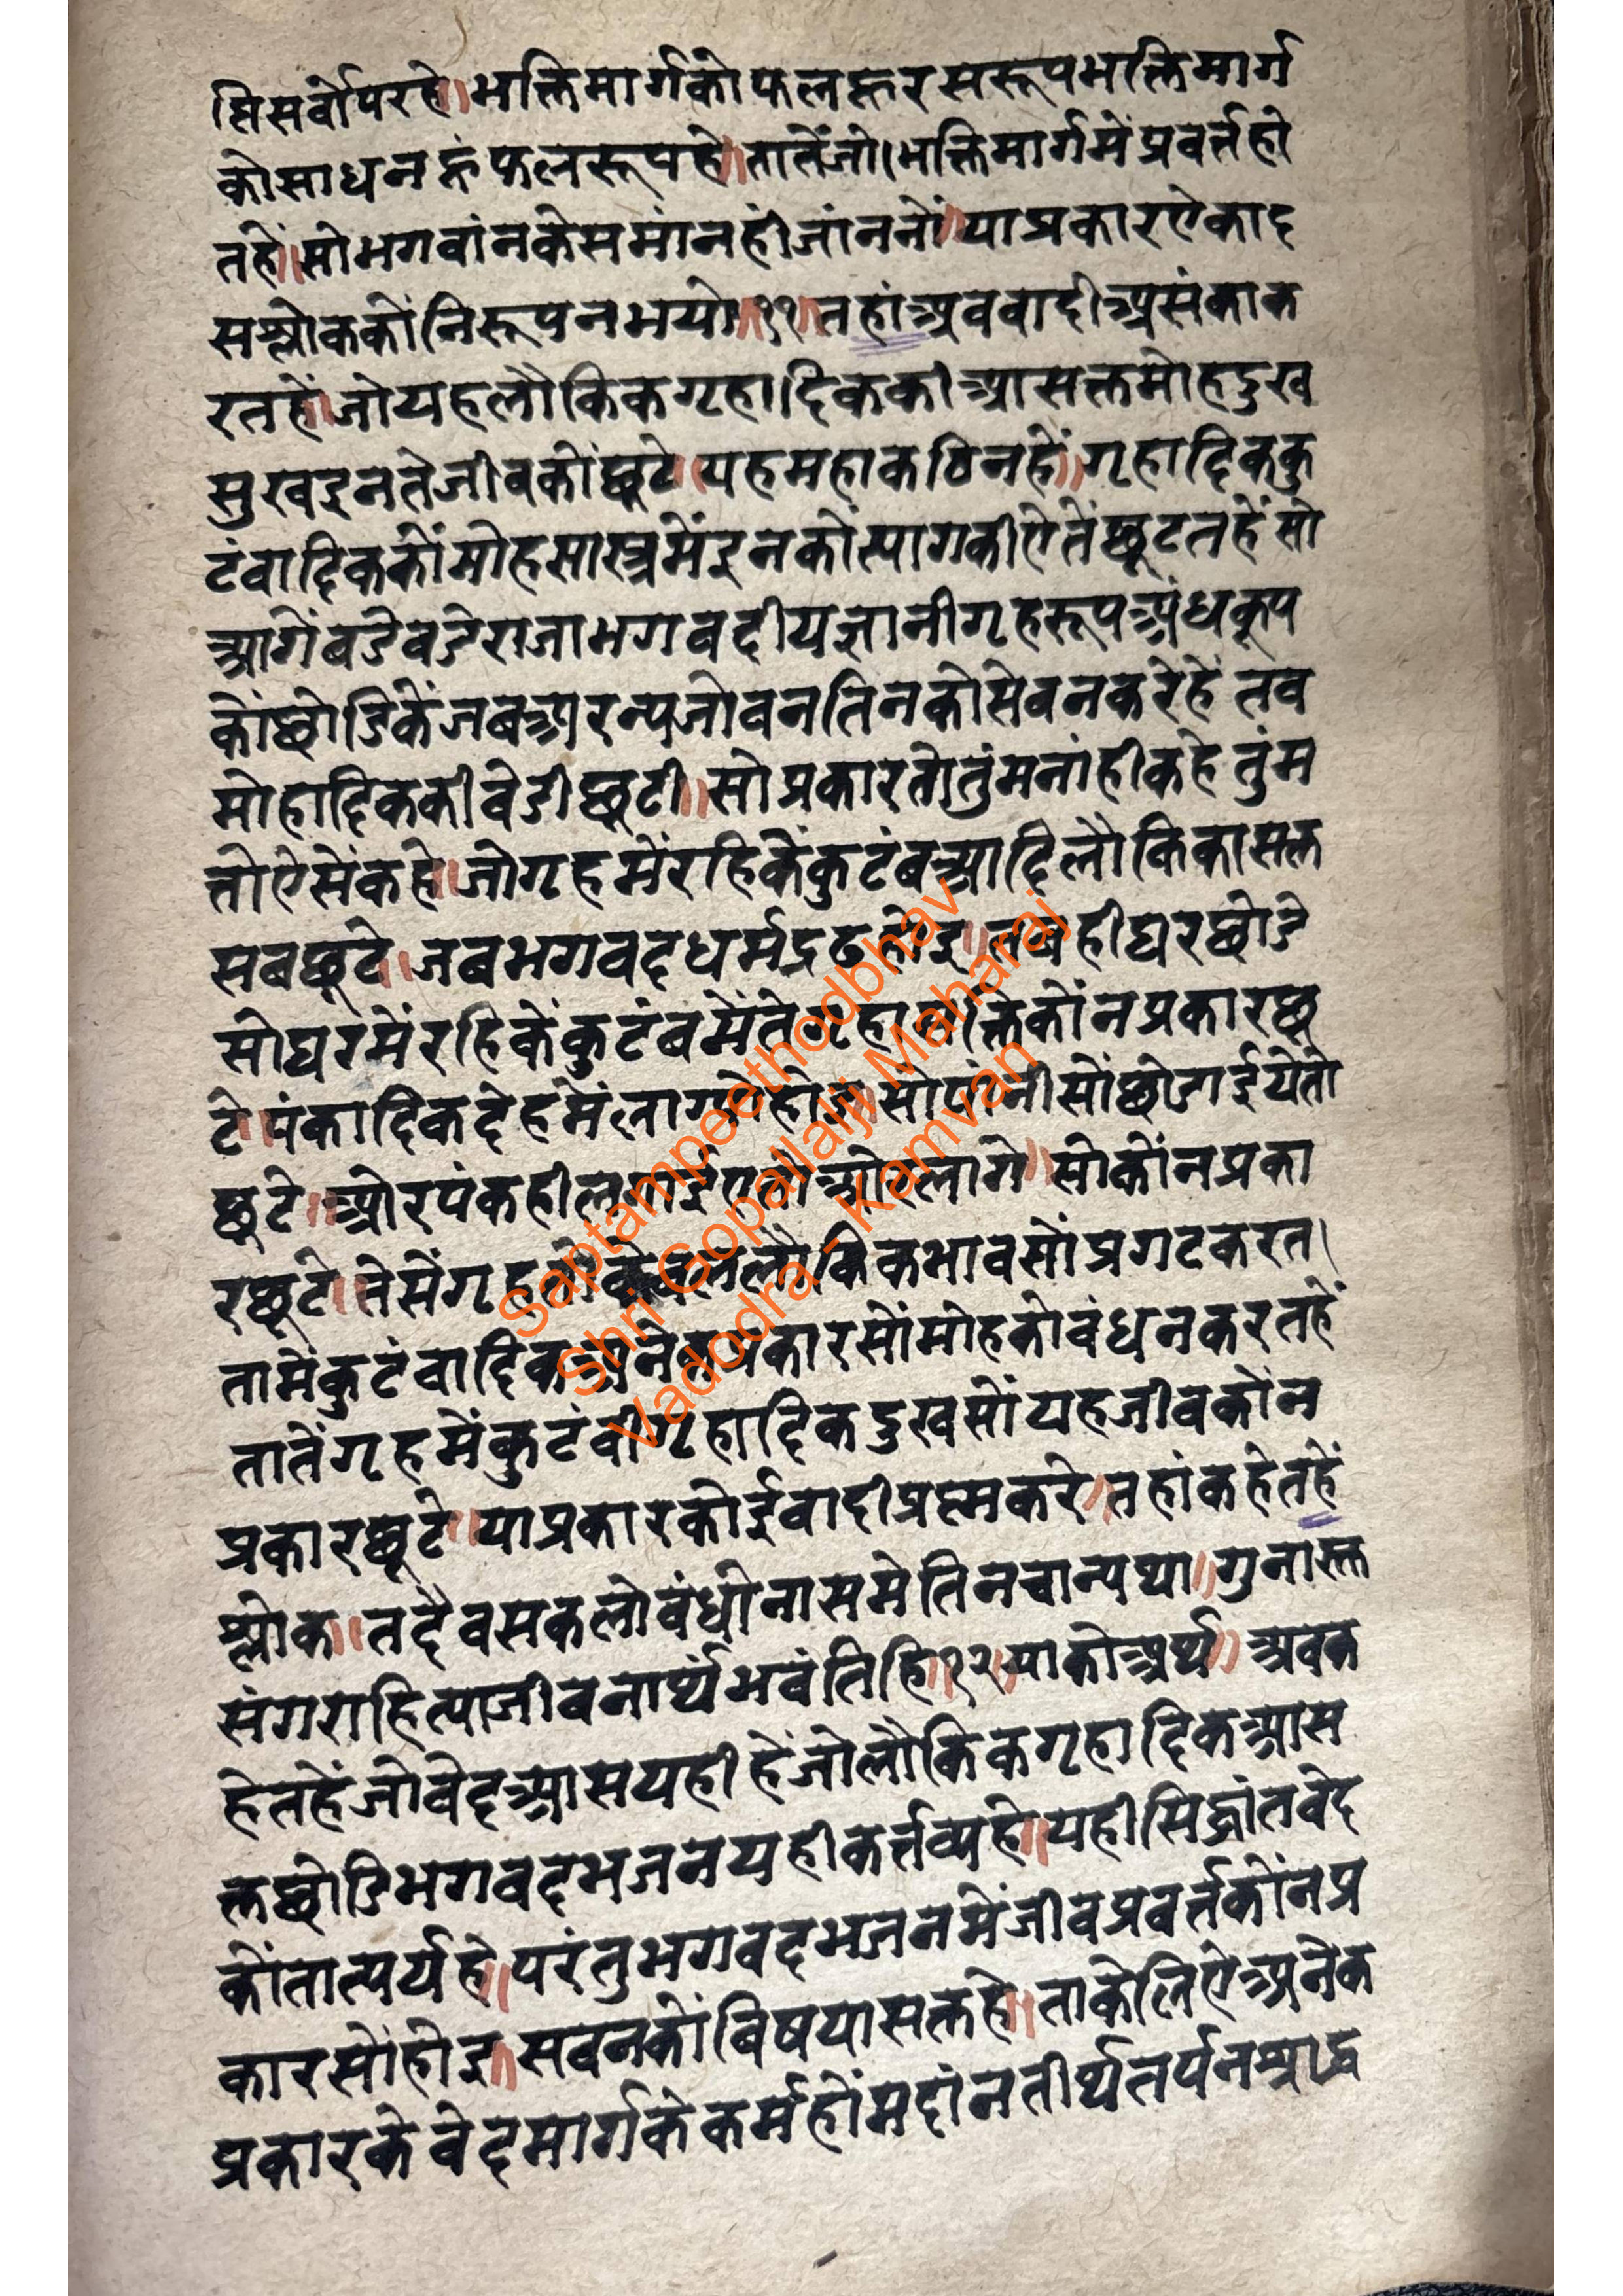 त्तिसर्वोपरहे॥भक्तिमार्गकोफलहूरसरूपभक्तिमार्ग
कोसाधनहूंफलरूपहे॥तातेंजो।भक्तिमार्गमेंप्रवर्त्तहो
तहें॥सोभगवांनकेसमांनहीजांननों॥याप्रकारऐकाद
सश्लोककोंनिरूपनभयो॥११॥तहांअववादीअसंकाक
रतहें॥जोयहलौकिकगृहादिककीआसक्तमोहदुख
सुखइनतेजीवकोंछूटे।यहमहाकठिनहें॥गृहादिककु
टंवादिककोंमोहसास्त्रमेंइनकोंत्यागकीऐतेंछूटतहेंसो
आगेंबडेबडेराजाभगवदीयज्ञानीगृहरूपअंधकूप
कोंछोडिकेंजबअरन्यजोवनतिनकोसेवनकरेहें तव
मोहादिककीवेडीछूटी॥सोप्रकारतोतुंमनांहीकहेतुंम
तोऐसेंकहे।जोगृहमेंरहिकेंकुटंबआदिलौकिकासक्त
सबछूटे।जबभगवदधर्मद्रढहोइ॥तबहीघरछोडे
सोघरमेंरहिकेंकुटंबमेंते कोंनप्रकारछू
टे॥पंकादिकदेहमेंलाग्योहोइ॥सोपांनीसोंछोडाईयेतो
छूटे॥ओरपंकहीलगाईएतोओरलागे॥सोकोंनप्रका
रछूटे॥तेसेंगृहतो लौकिकभावसोंप्रगटकरत।
तामेंकुटंवादिकअनेकप्रकारसोंमोहकोवंधनकरतहें
तातेंगृहमेंकुटंवीगृहादिकदुखसोंयहजीवकोंन
प्रकारछूटे॥याप्रकारकोईवादीप्रष्नकरे॥तहांकहेतहें
श्लोक॥तदैवसकलोवंधोनासमेतिनचान्यथा॥गुनास्क्त
संगराहित्याजीवनार्थंभवंतिहि॥१२॥याकोअर्थ॥अवक
हेतहेंजोवेदआसयहीहेंजोलौकिकगृहादिकआस
क्तछोडिभगवदभजनयहीकर्त्तव्यहे॥यहीसिद्धांतवेद
कोंतात्पर्यहे॥परंतुभगवदभजनमेंजीवप्रवर्त्तकोंनप्र
कारसोंहोइ॥सवनकोंविषयासक्तहे॥ताकेलिऐअनेक
प्रकारकेवेदमार्गकेकर्महोंमदांनतीर्थतर्पनश्राद्ध
Saptampeethodbhav
Shri Gopallalji Maharaj
Vadodra - Kamvan